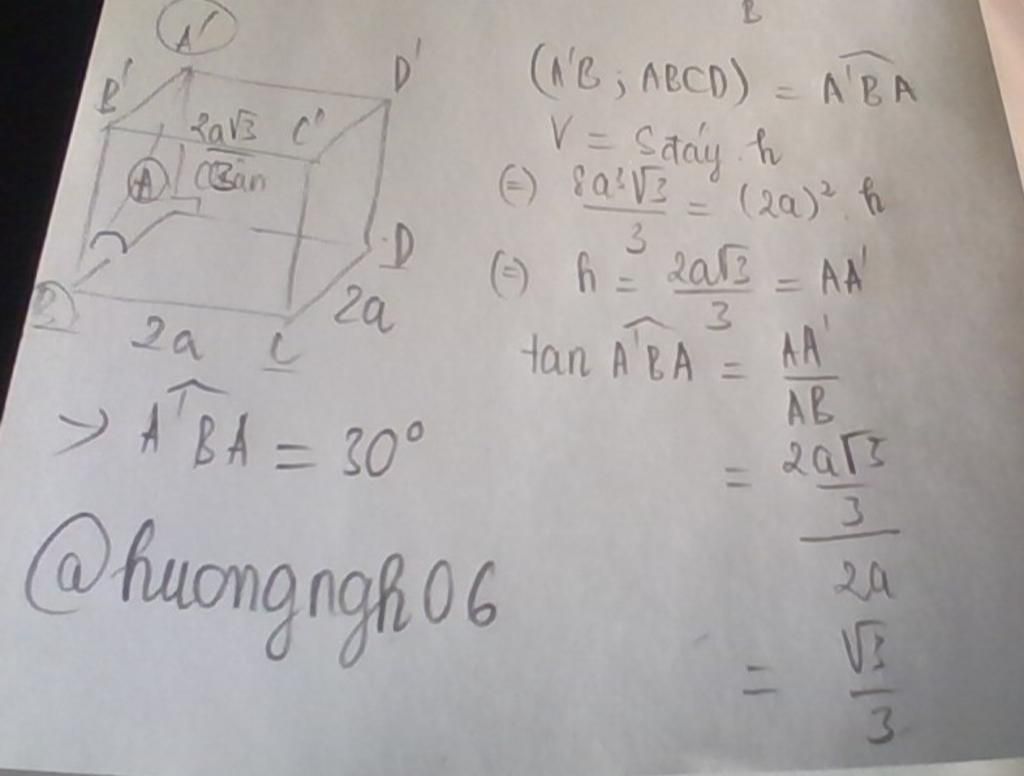 B
A'
B'
D'
2a√3
C'
3
A
D
2a
2a
C
(A'B ; ABCD) = A'BA
V = Sđáy . h
(=) 8a³√3 / 3 = (2a)² . h
(=) h = 2a√3 / 3 = AA'
tan A'BA = AA' / AB
= 2a√3 / 3 / 2a
= √3 / 3
> A'BA = 30°
@huongngh06